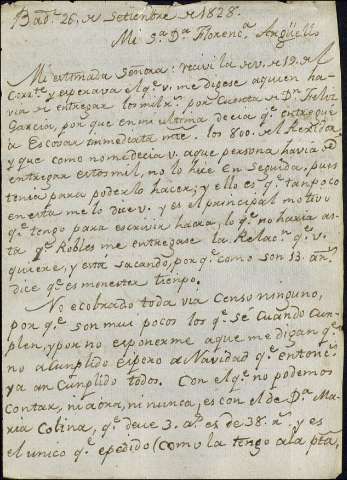 Bad.ª 26, de Setiembre de 1828.
Mi S.ª D.ª Florenc.ª Argüello
Mi estimada Señora: recivi la de v. de 19. del
Corr.te y esperava el q.e v. me digese aquien ha-
via de entregar los mil r.s por Cuenta de D.n Feliz
Garcia, por que en mi ultima decia q.e entregue
a Escovar immediata mte. los 800. del
y que como no me decia v. aque persona havia de
entregar estos mil, no lo hice en seguida. pues
tenia para poderlo hacer; y ello es q.e tampoco
en esta me lo dice v. y es el principal motivo
q.e tengo para escrivir haora, lo q.e no haria as-
ta q.e Robles me entregase la Relac.n q.e v.
quiere, y está sacando, por q.e como son 13. añ.s
dice q.e es menester tiempo.
No e cobrado toda via Censo ninguno,
por q.e son mui pocos los q.e se cuando Cum-
plen, y por no exponerme aque me digan q.e
no a Cumplido espero a Navidad q.e entonc.s
ya an Cumplido todos. Con el q.e no podemos
Contar, ni aora, ni nunca, es con el de D.ª Ma-
ria Colina, q.e deve 3. a.s es de 38. r.s y es
el unico q.e e pedido (como la tengo ala pta,